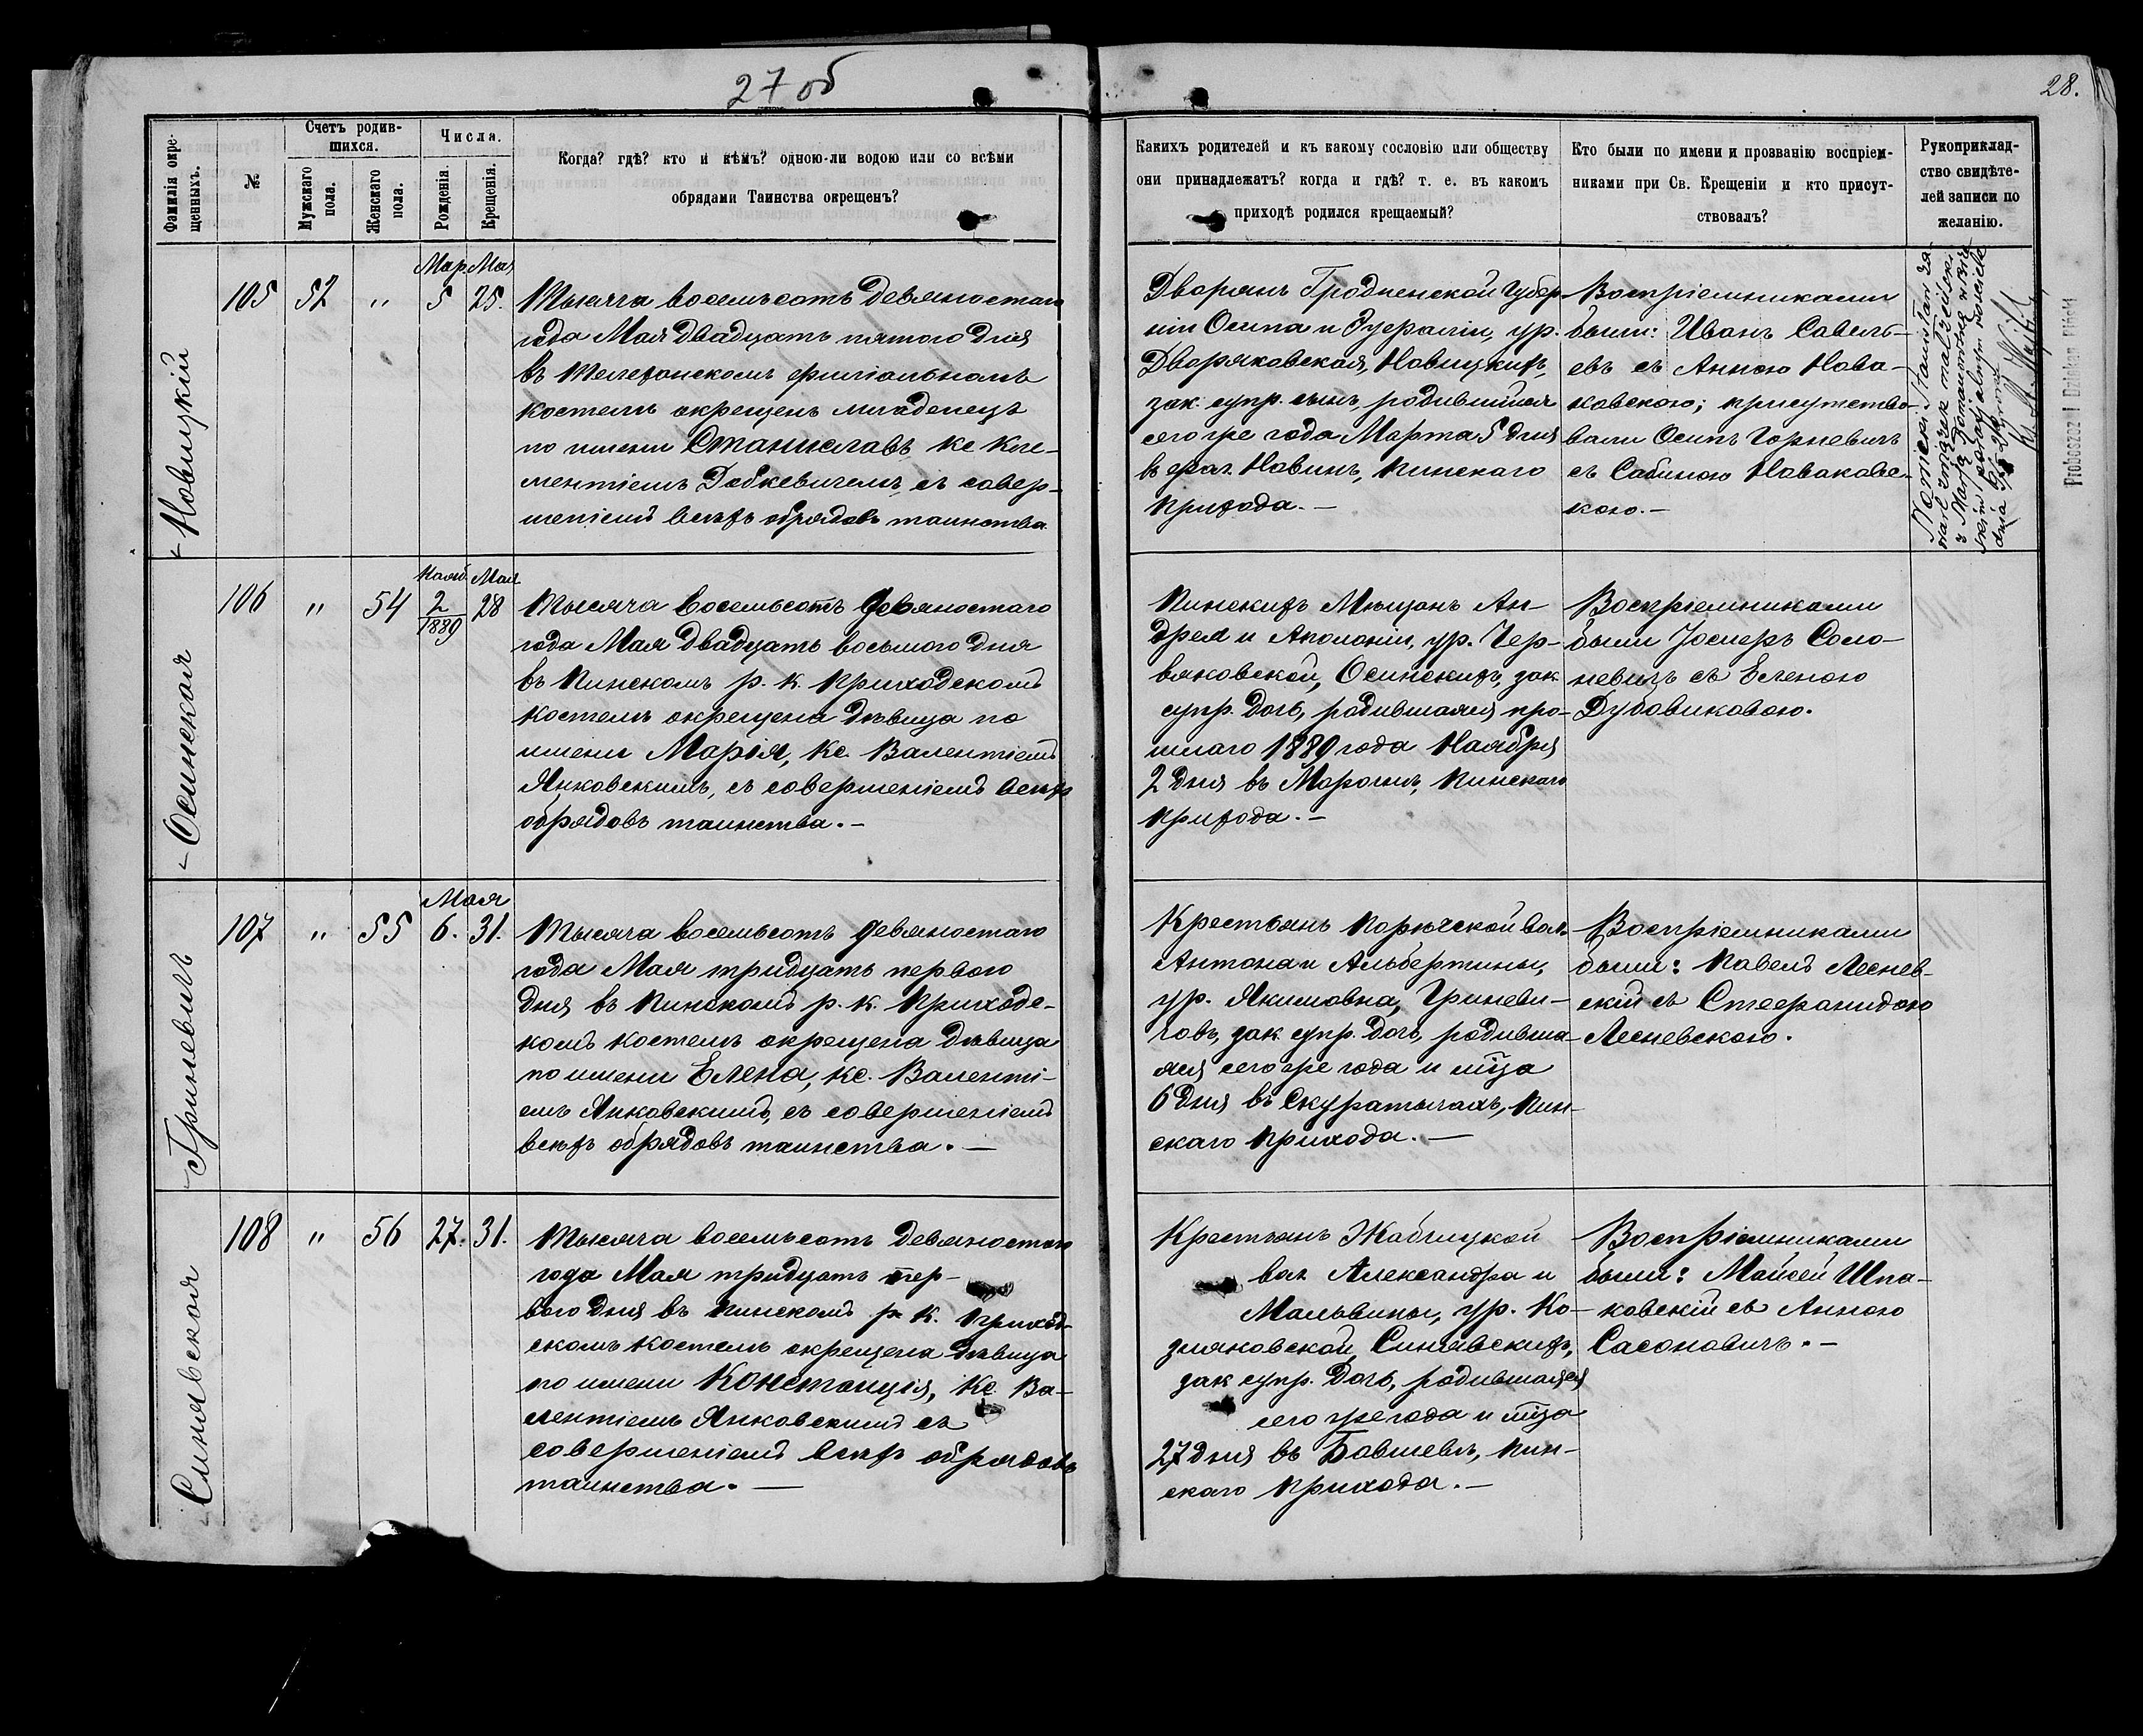 27 об
28.
Фамилія окре-
щенныхъ.
№
Счетъ родив-
шихся.
Мужскаго
пола.
Женскаго
пола.
Числа.
Рожденія.
Крещенія.
Когда? гдѣ? кто и кѣмъ? одною-ли водою или со всѣми
обрядами Таинства окрещенъ?
Какихъ родителей и къ какому сословію или обществу
они принадлежатъ? когда и гдѣ? т. е. въ какомъ
приходѣ родился крещаемый?
Кто были по имени и прозванію воспріем-
никами при Св. Крещеніи и кто присут-
ствовалъ?
Рукоприклад-
ство свидѣте-
лей записи по
желанію.
Новицкій
Мар. Мая
105 52 " 5 25.
Тысяча восемьсотъ девяностаго
года Мая двадцать пятого дня
въ Телеханскомъ филіальномъ
костелѣ окрещенъ младенецъ
по имени Станиславъ, Кс Кле-
ментіемъ Добкевичемъ, съ совер-
шеніемъ всѣхъ обрядовъ таинства.
Дворянъ Гродненской Губер-
ніи Осипа и Эуфаліи, ур.
Дворяковская, Новицкихъ,
зак. супр. сынъ, родившійся
сего же года Марта 5 дня
въ фол. Новинъ, Пинскаго
прихода. —
Воспріемниками
были: Иванъ Савель-
евъ съ Анною Нова-
ковскою; присутство-
вали Осипъ Горневичъ
съ Сабиною Новаковс-
кою. —
Nowicki Stanisław za-
warł związek małżeński
z Marją
Proboszcz i Dziekan Piński
Осинская
Нояб. Мая
106 " 54 2/1889 28
Тысяча восемьсотъ девяностаго
года Мая двадцать восьмого дня
въ Пинскомъ р. к. приходскомъ
костелѣ окрещена дѣвица по
имени Марія, Кс. Валентіемъ
Янковскимъ, съ совершеніемъ всѣхъ
обрядовъ таинства. —
Пинскихъ Мѣщанъ Ан-
дрея и Аполоніи, ур. Чер-
вяковской, Осинскихъ, зак
супр. дочь, родившаяся про-
шлаго 1889 года Ноября
2 дня въ Морочнѣ, Пинскаго
прихода. —
Воспріемниками
были Іосиеръ Соло-
невичъ съ Еленою
Дубовиковою.
Гриневичъ
Мая
107 " 55 6. 31.
Тысяча восемьсотъ девяностаго
года Мая тридцать первого
дня въ Пинскомъ р. к. приходс-
комъ костелѣ окрещена дѣвица
по имени Елена, Кс. Валенті-
емъ Янковскимъ, съ совершеніемъ
всѣхъ обрядовъ таинства. —
Крестьянъ Порѣчской вол.
Антона и Альбертины,
ур. Якимовна, Гриневи-
човъ, зак. супр. дочь, родивша-
яся сего же года и мѣца
6 дня въ Скуратычахъ, Пин-
скаго прихода. —
Воспріемниками
были: Павелъ Леснев-
скій съ Стефанидою
Лесневскою.
Синявская
108 " 56 27. 31.
Тысяча восемьсотъ девяностаго
года Мая тридцать пер-
вого дня въ Пинскомъ р. к. приход-
скомъ костелѣ окрещена дѣвица
по имени Констанція, Кс. Ва-
лентіемъ Янковскимъ съ
совершеніемъ всѣхъ обрядовъ
таинства. —
Крестьянъ Жабчицкой
вол. Александра и
Мальвины, ур. Ко-
зляковской, Синявскихъ,
зак супр. дочь, родившаяся
сего же года и мѣца
27 дня въ Бовшевѣ, Пин-
скаго прихода. —
Воспріемниками
были: Мойсей Шпа-
ковскій съ Анною
Сасоновичъ. —